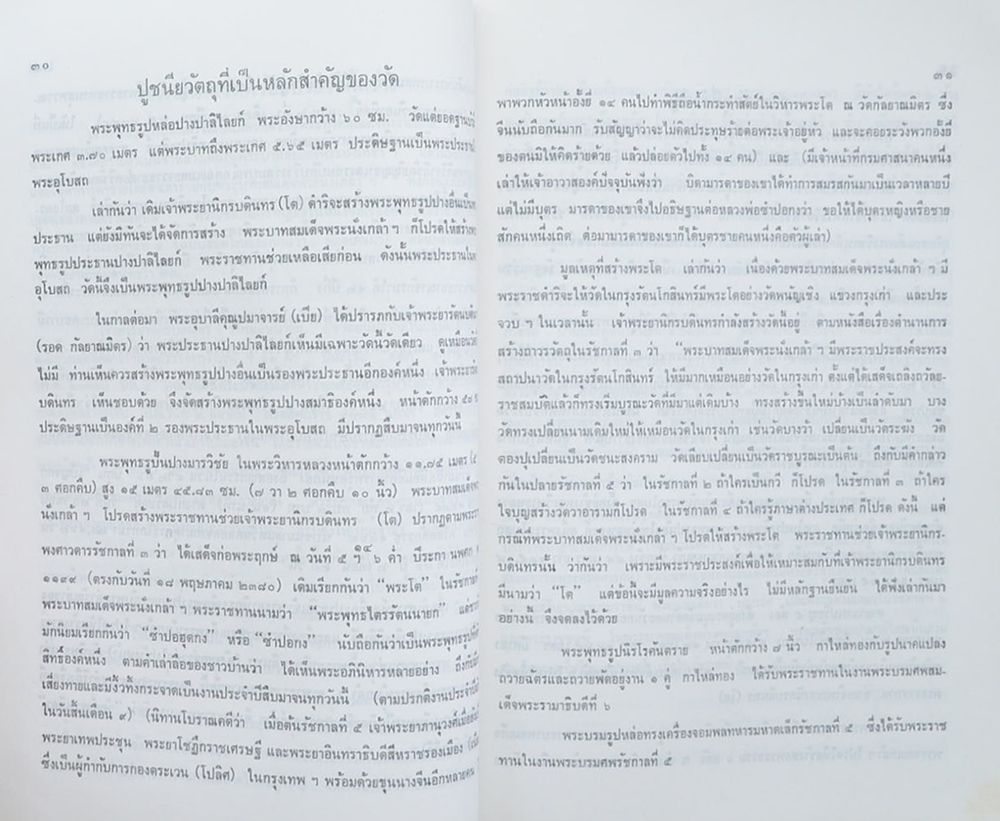 ๓๐
ปูชนียวัตถุที่เป็นหลักสำคัญของวัด
พระพุทธรูปหล่อปางปาลิไลยก์ พระอังษากว้าง ๖๐ ซม. วัดแต่ยอดฐาน
พระเกศ ๓.๗๐ เมตร แต่พระบาทถึงพระเกศ ๕.๖๕ เมตร ประดิษฐานเป็นพระประธาน
พระอุโบสถ
เล่ากันว่า เดิมเจ้าพระยานิกรบดินทร (โต) ดำริจะสร้างพระพุทธรูปปางอื่นเป็น
ประธาน แต่ยังมิทันจะได้จัดการสร้าง พระบาทสมเด็จพระนั่งเกล้า ฯ ก็โปรดให้สร้าง
พุทธรูปประธานปางปาลิไลยก์ พระราชทานช่วยเหลือเสียก่อน ดังนั้นพระประธานใน
อุโบสถ วัดนี้จึงเป็นพระพุทธรูปปางปาลิไลยก์
ในกาลต่อมา พระอุบาลีคุณูปมาจารย์ (เบี่ย) ได้ปรารภกับเจ้าพระยารัตนบดิ
(รอด กัลยาณมิตร) ว่า พระประธานปางปาลิไลยก์เห็นมีเฉพาะวัดนี้วัดเดียว ดูเหมือน
ไม่มี ท่านเห็นควรสร้างพระพุทธรูปปางอื่นเป็นรองพระประธานอีกองค์หนึ่ง เจ้าพระยา
บดินทร เห็นชอบด้วย จึงจัดสร้างพระพุทธรูปปางสมาธิองค์หนึ่ง หน้าตักกว้าง ๕๐
ประดิษฐานเป็นองค์ที่ ๒ รองพระประธานในพระอุโบสถ มีปรากฏสืบมาจนทุกวันนี้
พระพุทธรูปปั้นปางมารวิชัย ในพระวิหารหลวงหน้าตักกว้าง ๑๑,๗๕ เมตร
๓ ศอกคืบ) สูง ๑๕ เมตร ๔๕.๘๓ ซม. (๗ วา ๒ ศอกคืบ ๑๐ นิ้ว) พระบาทสมเด็จ
นั่งเกล้า ฯ โปรดสร้างพระราชทานช่วยเจ้าพระยานิกรบดินทร (โต) ปรากฏตามพระ
พงศาวดารรัชกาลที่ ๓ ว่า ได้เสด็จก่อพระฤกษ์ ณ วันที่ ๕ ๖ ค่ำ ปีระกา นพศก
๑๑๙๙ (ตรงกับวันที่ ๑๘ พฤษภาคม ๒๓๘๐) เดิมเรียกกันว่า “พระโต” ในรัชกาล
พระบาทสมเด็จพระนั่งเกล้า ฯ พระราชทานนามว่า “พระพุทธไตรรัตนนายก”
มักนิยมเรียกกันว่า “ซำปอฮุดกง” หรือ “ซำปอกง” นับถือกันว่าเป็นพระพุทธรูป
สิทธิ์องค์หนึ่ง ตามคำเล่าลือของชาวบ้านว่า ได้เห็นพระอภินิหารหลายอย่าง
เสี่ยงทายและมีงิ้วทิ้งกระจาดเป็นงานประจำปีสืบมาจนทุกวันนี้ (ตามปรกติงานประจำ
ในวันสิ้นเดือน ๙) (นิทานโบราณคดีว่า เมื่อต้นรัชกาลที่ ๕ เจ้าพระยาภานุวงศ์
พระยาเทพประชุน พระยาโชฎึกราชเศรษฐี และพระยาอินทราธิบดีสีหราชรองเมือง
ซึ่งเป็นผู้กำกับการกองตระเวน (โปลิศ) ในกรุงเทพ ฯ พร้อมด้วยขุนนางจีนอีกหลายคน
๓๑
พาพวกหัวหน้าอั้งยี่ ๑๔ คนไปทำพิธีถือน้ำกระทำสัตย์ในวิหารพระโต ณ วัดกัลยาณมิตร ซึ่ง
จีนนับถือกันมาก รับสัญญาว่าจะไม่คิดประทุษร้ายต่อพระเจ้าอยู่หัว และจะคอยระวังพวกอั้งยี่
ของตนมิให้คิดร้ายด้วย แล้วปล่อยตัวไปทั้ง ๑๔ คน) และ (มีเจ้าหน้าที่กรมศาสนาคนหนึ่ง
เล่าให้เจ้าอาวาสองค์ปัจจุบันฟังว่า บิดามารดาของเขาได้ทำการสมรสกันมาเป็นเวลาหลายปี
แต่ไม่มีบุตร มารดาของเขาจึงไปอธิษฐานต่อหลวงพ่อซำปอกงว่า ขอให้ได้บุตรหญิงหรือชาย
สักคนหนึ่งเถิด ต่อมามารดาของเขาก็ได้บุตรชายคนหนึ่งคือตัวผู้เล่า)
มูลเหตุที่สร้างพระโต เล่ากันว่า เนื่องด้วยพระบาทสมเด็จพระนั่งเกล้า ฯ มี
พระราชดำริจะให้วัดในกรุงรัตนโกสินทร์มีพระโตอย่างวัดพนัญเชิง แขวงกรุงเก่า และประ
จวบ ฯ ในเวลานั้น เจ้าพระยานิกรบดินทรกำลังสร้างวัดนี้อยู่ ตามหนังสือเรื่องตำนานการ
สร้างถาวรวัตถุในรัชกาลที่ ๓ ว่า “พระบาทสมเด็จพระนั่งเกล้า ฯ มีพระราชประสงค์จะทรง
สถาปนาวัดในกรุงรัตนโกสินทร์ ให้มีมากเหมือนอย่างวัดในกรุงเก่า ตั้งแต่ได้เสด็จเถลิงถวัลย-
ราชสมบัติแล้วก็ทรงเริ่มบูรณะวัดที่มีมาแต่เดิมบ้าง ทรงสร้างขึ้นใหม่บ้างเป็นลำดับมา บาง
วัดทรงเปลี่ยนนามเดิมใหม่ให้เหมือนวัดในกรุงเก่า เช่นวัดบางว้า เปลี่ยนเป็นวัดระฆัง วัด
ตองปุเปลี่ยนเป็นวัดชนะสงคราม วัดเลียบเปลี่ยนเป็นวัดราชบูรณะเป็นต้น ถึงกับมีคำกล่าว
กันในปลายรัชกาลที่ ๕ ว่า ในรัชกาลที่ ๒ ถ้าใครเป็นกวี ก็โปรด ในรัชกาลที่ ๓ ถ้าใคร
ใจบุญสร้างวัดวาอารามก็โปรด ในรัชกาลที่ ๔ ถ้าใครรู้ภาษาต่างประเทศ ก็โปรด ดังนี้ แต่
กรณีที่พระบาทสมเด็จพระนั่งเกล้า ฯ โปรดให้สร้างพระโต พระราชทานช่วยเจ้าพระยานิกร-
บดินทรนั้น ว่ากันว่า เพราะมีพระราชประสงค์เพื่อให้เหมาะสมกับที่เจ้าพระยานิกรบดินทร
มีนามว่า “โต” แต่ข้อนี้จะมีมูลความจริงอย่างไร ไม่มีหลักฐานยืนยัน ได้ฟังเล่ากันมา
อย่างนี้ จึงจดลงไว้ด้วย
พระพุทธรูปนิรโรคันตราย หน้าตักกว้าง ๗ นิ้ว กาไหล่ทองกับรูปนาคแปลง
ถวายฉัตรและถวายพัดอยู่งาน ๑ คู่ กาไหล่ทอง ได้รับพระราชทานในงานพระบรมศพสม-
เด็จพระรามาธิบดีที่ ๖
พระบรมรูปหล่อทรงเครื่องจอมพลทหารมหาดเล็กรัชกาลที่ ๕ ซึ่งได้รับพระราช
ทานในงานพระบรมศพรัชกาลที่ ๕